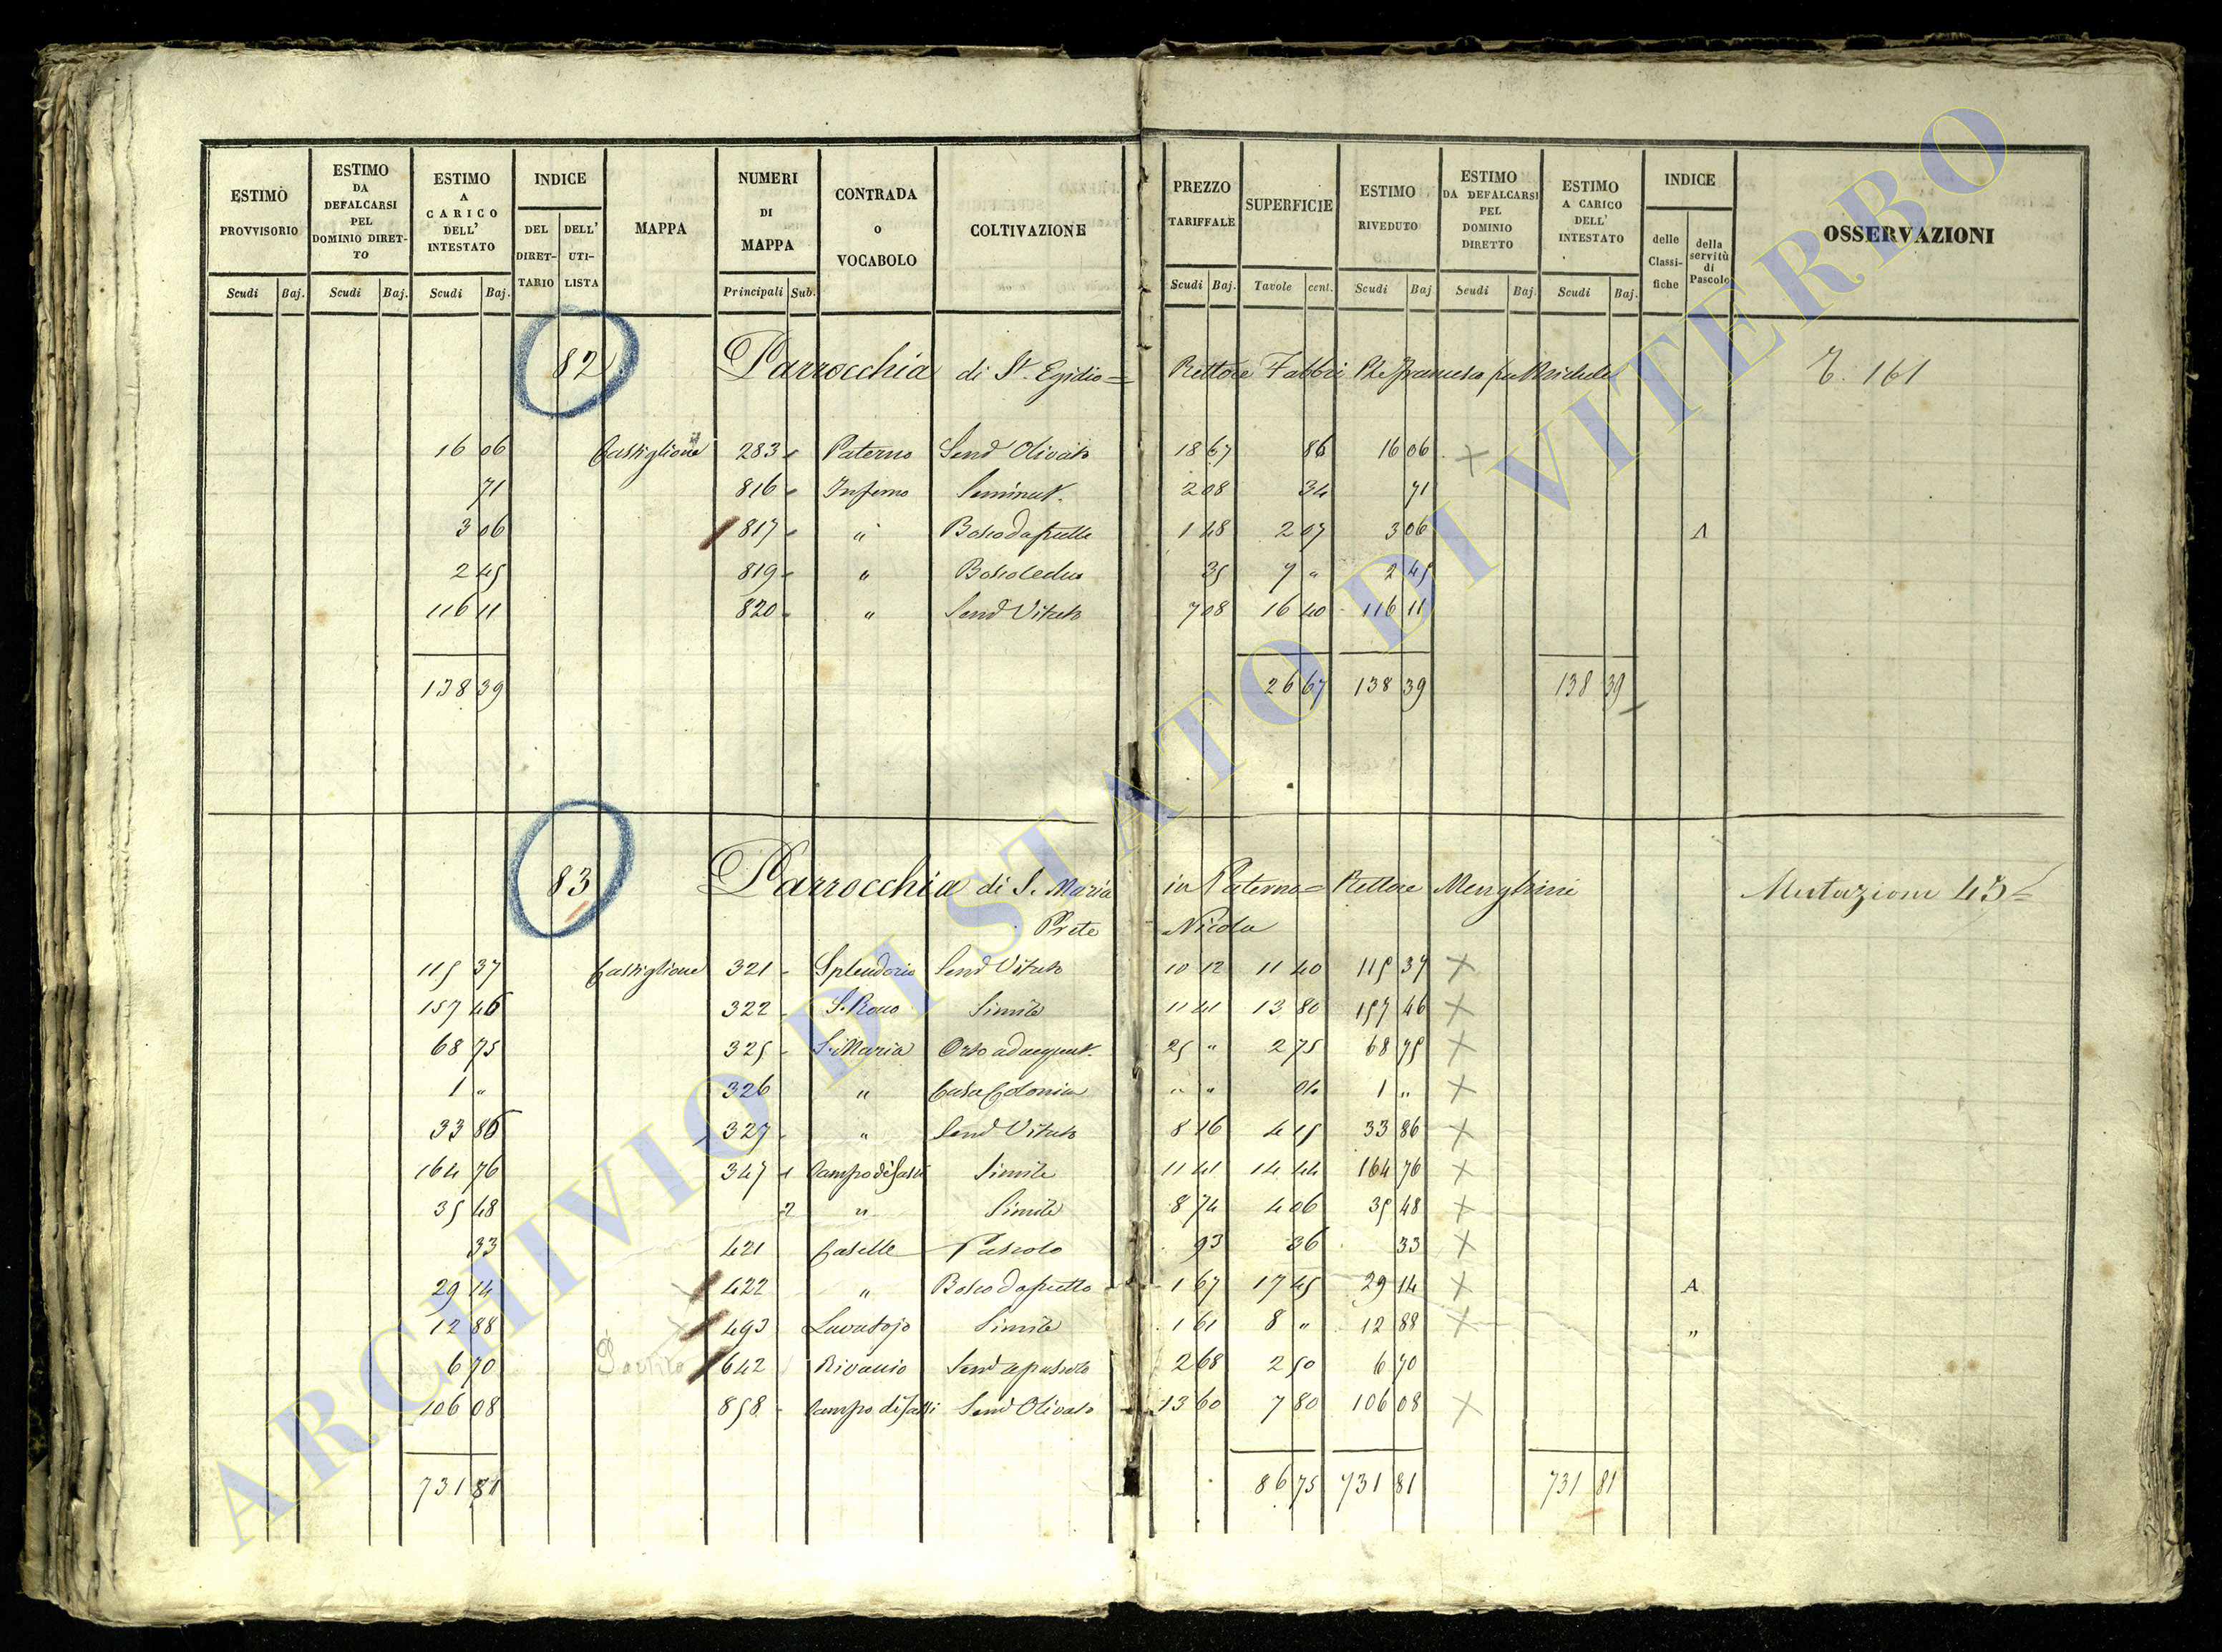 ESTIMO PROVVISORIO Scudi Baj.
ESTIMO DA DEFALCARSI PEL DOMINIO DIRET-TO Scudi Baj.
ESTIMO A CARICO DELL' INTESTATO Scudi Baj.
INDICE DEL DIRET-TARIO DELL' UTI-LISTA
MAPPA
NUMERI DI MAPPA Principali Sub.
CONTRADA O VOCABOLO
COLTIVAZIONE
PREZZO TARIFFALE Scudi Baj.
SUPERFICIE Tavole cent.
ESTIMO RIVEDUTO Scudi Baj
ESTIMO DA DEFALCARSI PEL DOMINIO DIRETTO Scudi Baj.
ESTIMO A CARICO DELL' INTESTATO Scudi Baj.
INDICE delle Classi-fiche della servitù di Pascolo
OSSERVAZIONI
82 Parrocchia di St. Egidio = Rettore Fabbri Francesco fu Michele 161
16 06 Castiglione 283 Paterno Semo Olivato 18 67 86 16 06
71 816 Inferno Seminat. 2 08 34 71
3 06 817 " Bosco da frutto 1 48 2 07 3 06 A
2 45 819 " Bosco Ceduo 35 7 " 2 45
116 11 820 " Semo Vitato 7 08 16 40 116 11
138 39 26 67 138 39 138 39
83 Parrocchia di S. Maria in Paterno = Rettore Menghini Mutazioni 45
Prete Nicola
115 37 Castiglione 321 Splendorio Semo Vitato 10 12 11 40 115 37 ×
157 46 322 S. Rocco Simile 11 41 13 80 157 46 ×
68 75 325 S. Maria Orto adacquat. 25 " 2 75 68 75 ×
1 " 326 " Casa Colonica " " 04 1 " ×
33 86 327 " Semo Vitato 8 16 4 15 33 86 ×
164 76 347 1 Campo di Sassi Simile 11 41 14 44 164 76 ×
35 48 2 " Simile 8 74 4 06 35 48 ×
33 421 Caselle Pascolo 93 36 33 ×
29 14 422 " Bosco da frutto 1 67 17 45 29 14 × A
12 88 493 Lavatojo Simile 1 61 8 " 12 88 × "
6 70 642 Semo a pascolo 2 68 2 50 6 70
106 08 858 Campo di Sassi Semo Olivato 13 60 7 80 106 08 ×
731 81 86 75 731 81 731 81
ARCHIVIO DI STATO DI VITERBO